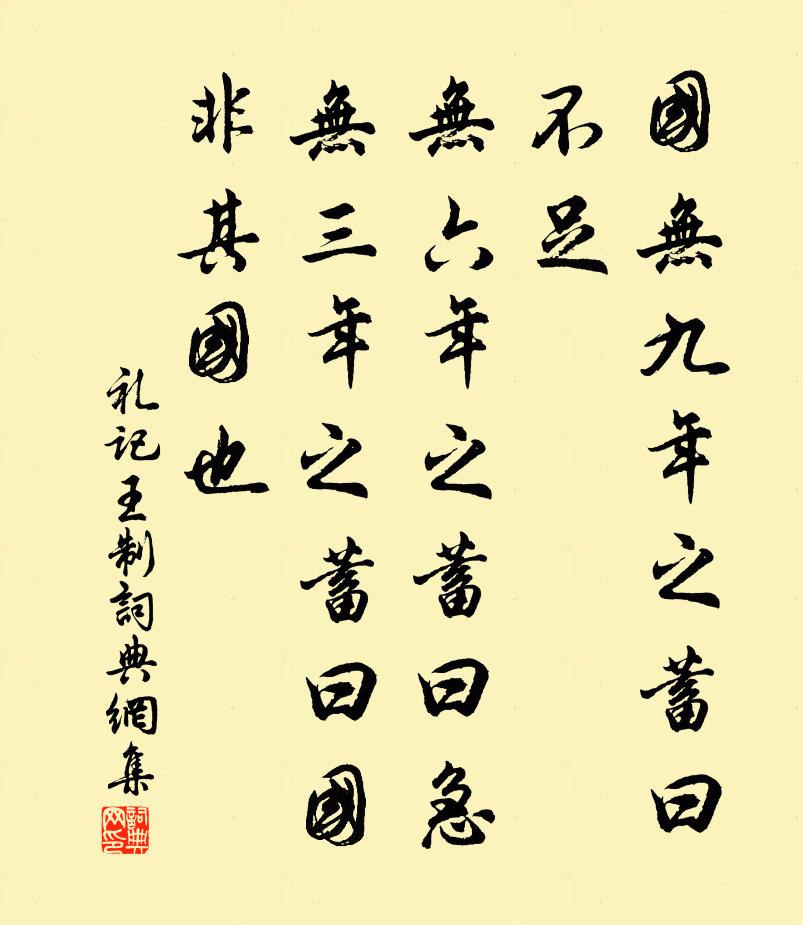 國無九年之蓄曰
不足
無六年之蓄曰急
無三年之蓄曰國
非其國也
礼記王制詞典網集
詞典
网印